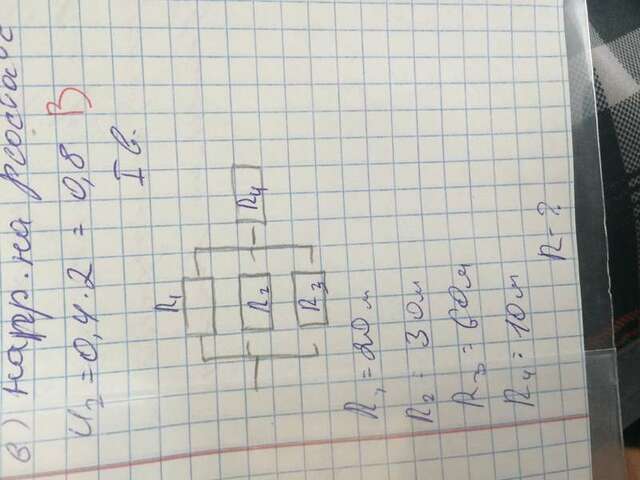 в) напр. на реостате
U2 = 0,4 · 2 = 0,8 В
I в.
R1
R2
R4
R3
R1 = 2Ом
R2 = 3Ом
R3 = 6Ом
R4 = 1Ом
R - ?